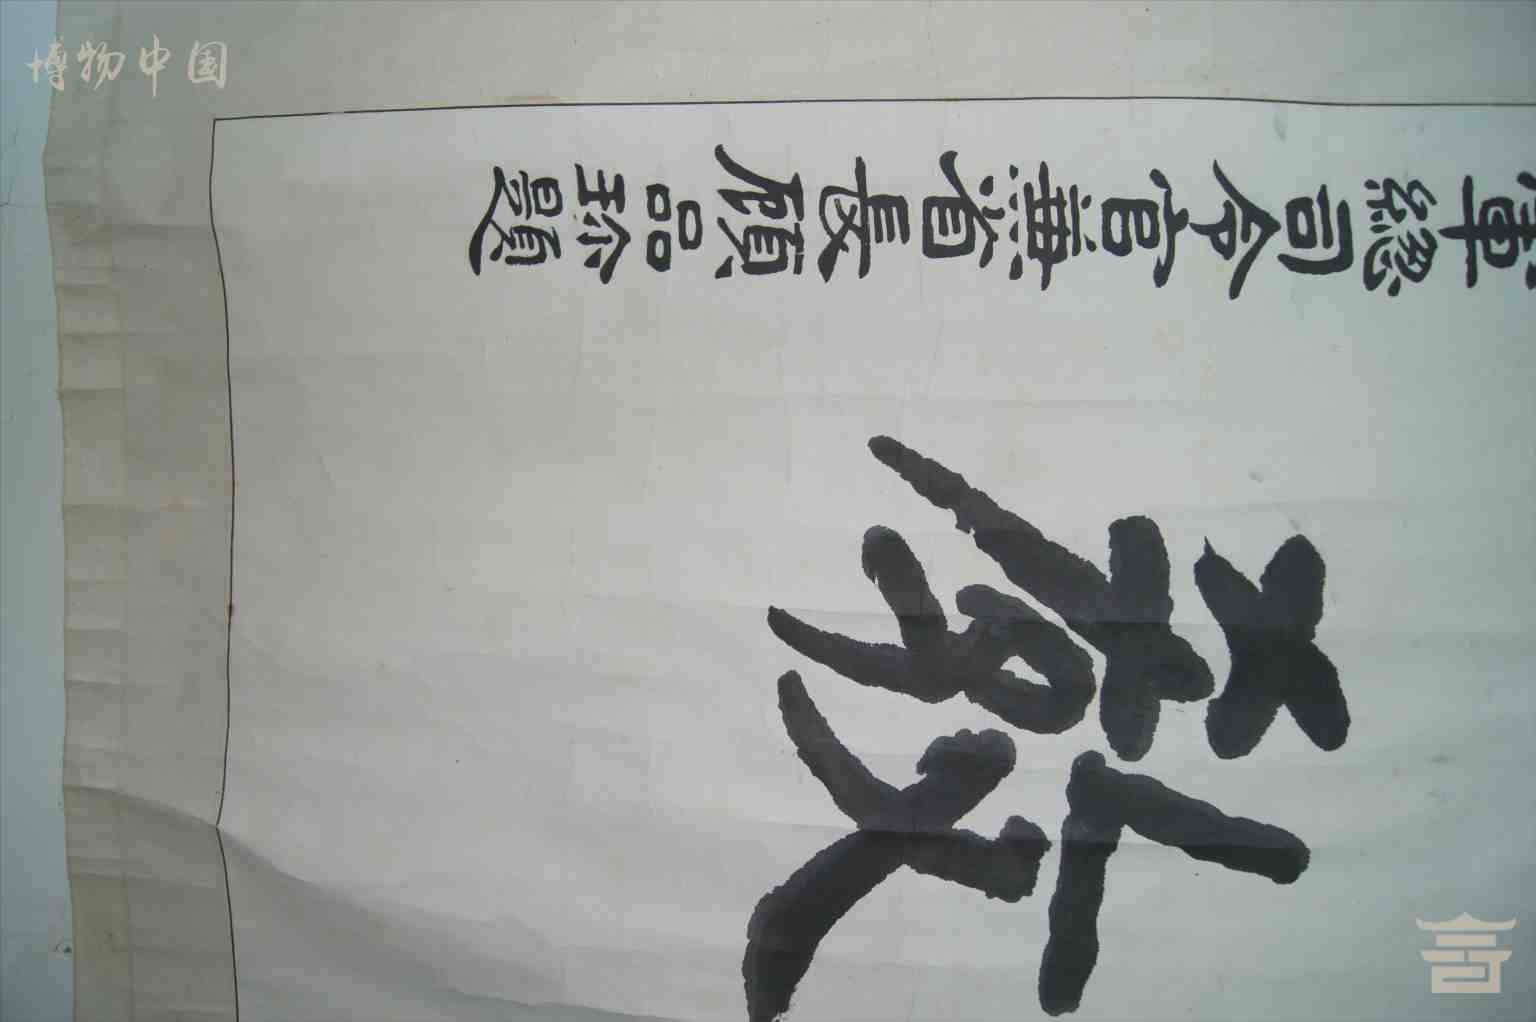 博物中国
敎
軍總司令官兼省長顧品珍題